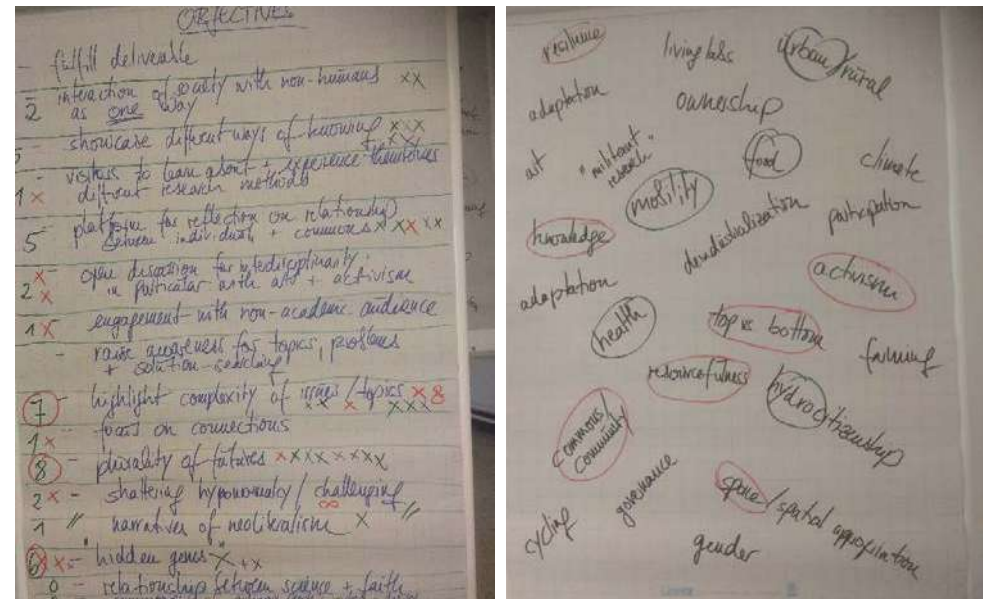 OBJECTIVES
- fulfill deliverable
2 interaction of society with non-humans xx
as one way
- showcase different ways of knowing xxx
xxx
- visitors to learn about + experience themselves
1 x different research methods
5 - platform for reflection on relationship
between individual + commons x x x x x
x - open discussion for interdisciplinarity,
2 x in particular with art + activism
1 x engagement with non-academic audience
- raise awareness for topics, problems
+ solution-searching
7 - highlight complexity of issues / topics x 8
xx x xxx
1 x - focus on connections
8 - plurality of futures x x x x x x x x
2 x - shattering / challenging
1 " narratives of neoliberalism x "
6 x x - "hidden gems" x + x
0 - relationship between science + faith
resilience
living labs
urban/rural
adaptation
ownership
art
"militant"
research
food
climate
mobility
participation
knowledge
deindustrialization
activism
adaptation
health
top vs bottom
farming
resourcefulness
hydrocitizenship
commons/
community
governance
space/spatial appropriation
cycling
gender